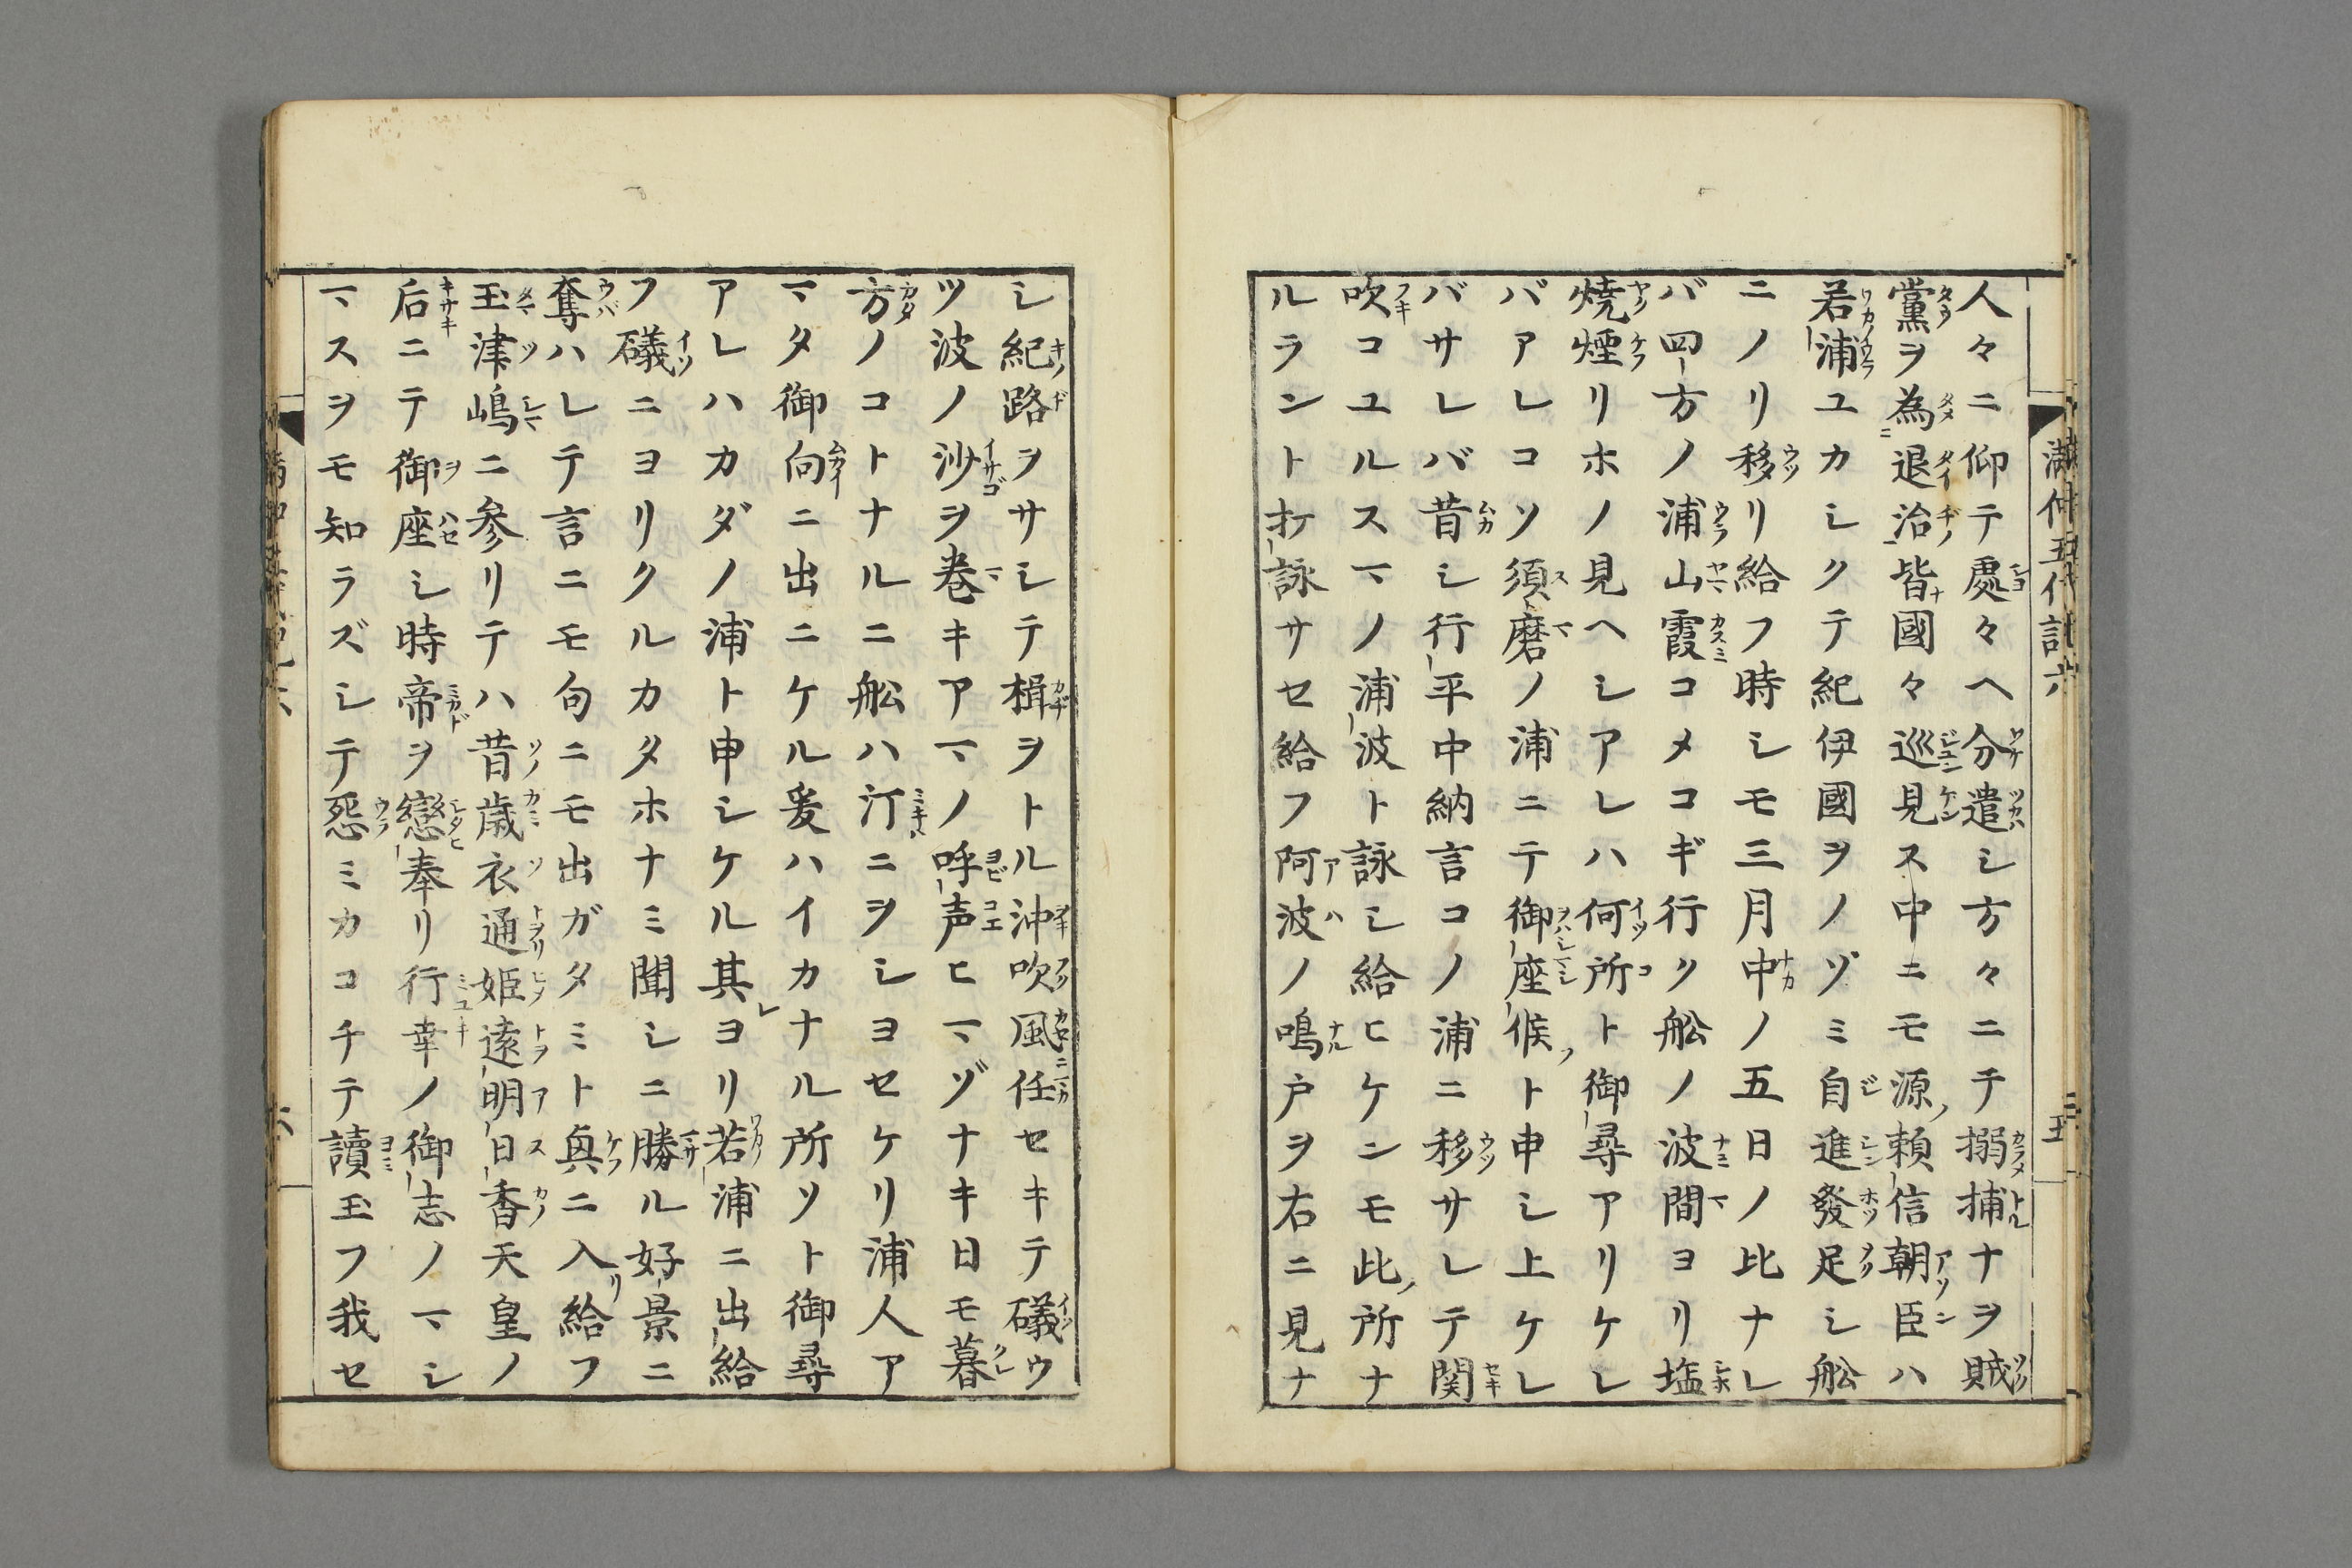 人々ニ仰テ處々ヘ分遣シ方々ニテ搦捕ナヲ賊
黨ヲ為退治皆國々巡見ス中ニモ源頼信朝臣ハ
若浦ユカシクテ紀伊國ヲノゾミ自進發足シ舩
ニノリ移リ給フ時シモ三月中ノ五日ノ比ナレ
バ四方ノ浦山霞コメコギ行ク舩ノ波間ヨリ塩
焼煙リホノ見ヘシアレハ何所ト御尋アリケレ
バアレコソ須磨ノ浦ニテ御座候ト申シ上ケレ
バサレバ昔シ行平中納言コノ浦ニ移サレテ関
吹コユルスマノ浦波ト詠シ給ヒケンモ此所ナ
ルラント打詠サセ給フ阿波ノ鳴戸ヲ右ニ見ナ
シ紀路ヲサシテ楫ヲトル沖吹風任セキテ礒ウ
ツ波ノ沙ヲ巻キアマノ呼声ヒマゾナキ日モ暮
方ノコトナルニ舩ハ汀ニヲシヨセケリ浦人ア
マタ御向ニ出ニケル爰ハイカナル所ソト御尋
アレハカダノ浦ト申シケル其ヨリ若浦ニ出給
フ礒ニヨリクルカタホナミ聞シニ勝ル好景ニ
奪ハレテ言ニモ句ニモ出ガタミト眞ニ入給フ
玉津嶋ニ参リテハ昔歳衣通姫遠明日香天皇ノ
后ニテ御座シ時帝ヲ戀奉リ行幸ノ御志ノマシ
マスヲモ知ラズシテ怨ミカコチテ讀玉フ我セ
満仲五代記六
五
六